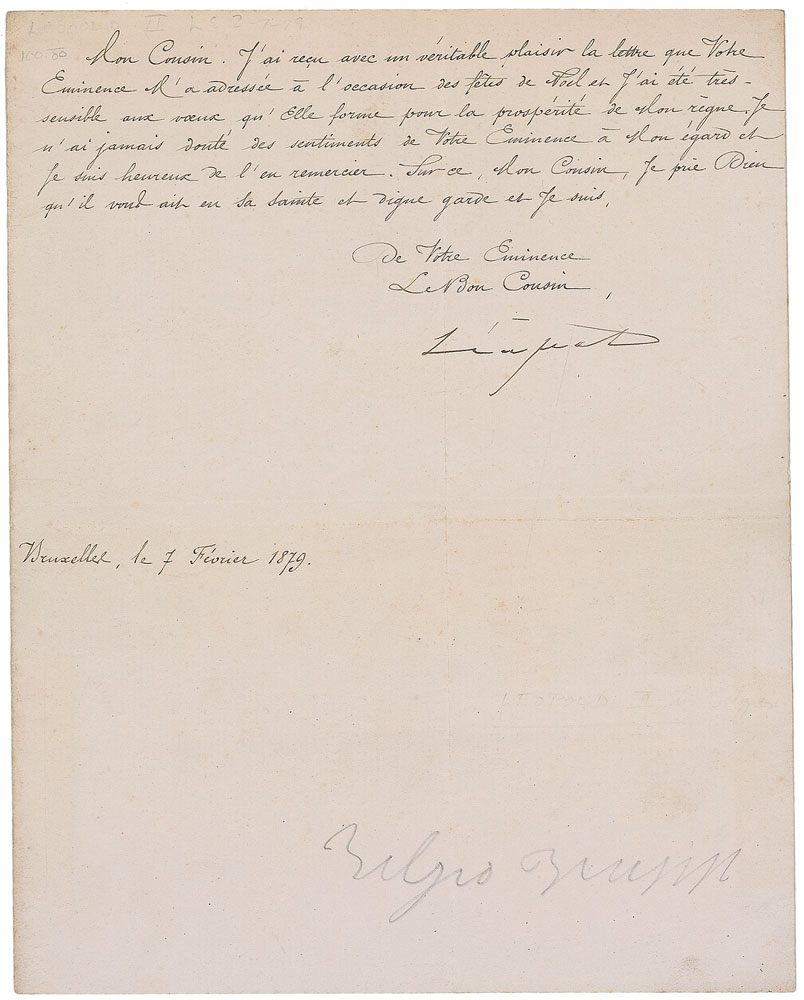 LEOPOLD II LS
100.80
Mon Cousin. J'ai reçu avec un véritable plaisir la lettre que Votre
Eminence M'a adressée à l'occasion des fêtes de Noël et J'ai été très-
sensible aux vœux qu'Elle forme pour la prospérité de Mon règne. Je
n'ai jamais douté des sentiments de Votre Eminence à Mon égard et
Je suis heureux de l'en remercier. Sur ce, Mon Cousin, Je prie Dieu
qu'il vous ait en sa sainte et digne garde et Je suis,
De Votre Eminence
Le Bon Cousin,
Léopold
Bruxelles, le 7 Février 1879.
LEOPOLD II
Belgio